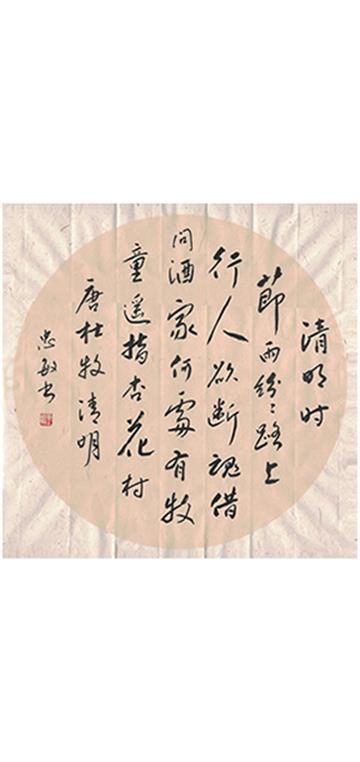 清明时
节雨纷〻路上
行人欲断魂借
问酒家何处有牧
童遥指杏花村
唐杜牧清明
忠敏书